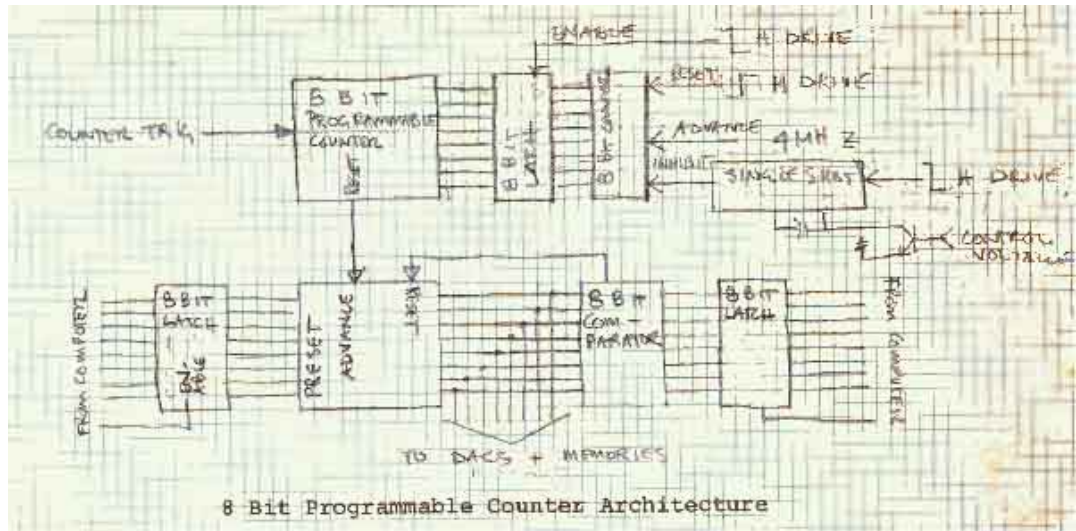 ENABLE
H DRIVE
8 BIT
PROGRAMMABLE
COUNTER
RESET
COUNTER TRIG
8 BIT
LATCH
8 BIT COUNTER
RESET
H DRIVE
ADVANCE
4 MHZ
INHIBIT
SINGLE SHOT
H DRIVE
CONTROL
VOLTAGE
FROM COMPUTER
8 BIT
LATCH
EN-
ABLE
PRESET
ADVANCE
RESET
8 BIT
COM-
PARATOR
8 BIT
LATCH
FROM COMPUTER
TO DACS + MEMORIES
8 Bit Programmable Counter Architecture